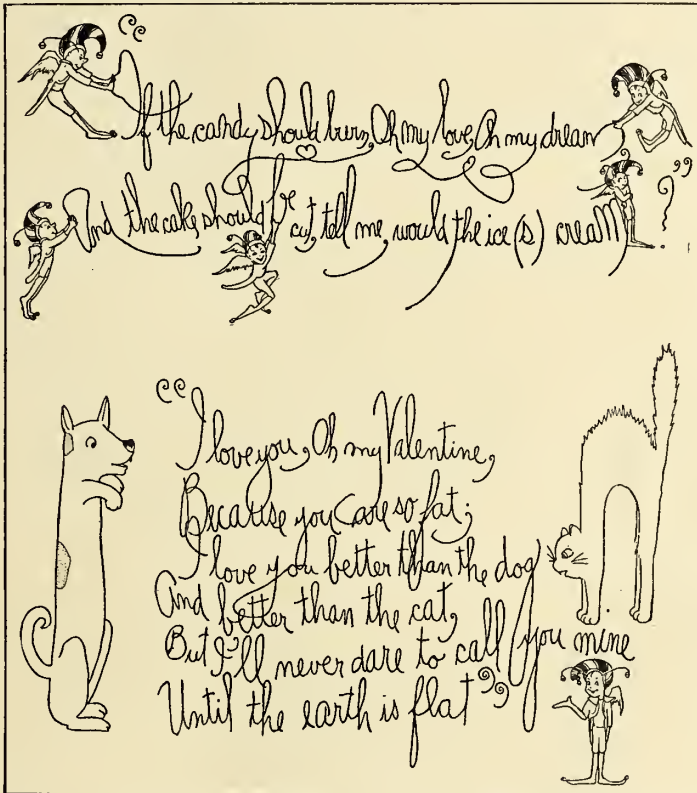 "If the candy should burn, Oh my love, Oh my dream
And the cake should be cut, tell me, would the ice (s) cream?"
"I love you, Oh my Valentine,
Because you are so fat;
I love you better than the dog
And better than the cat,
But I'll never dare to call you mine
Until the earth is flat"